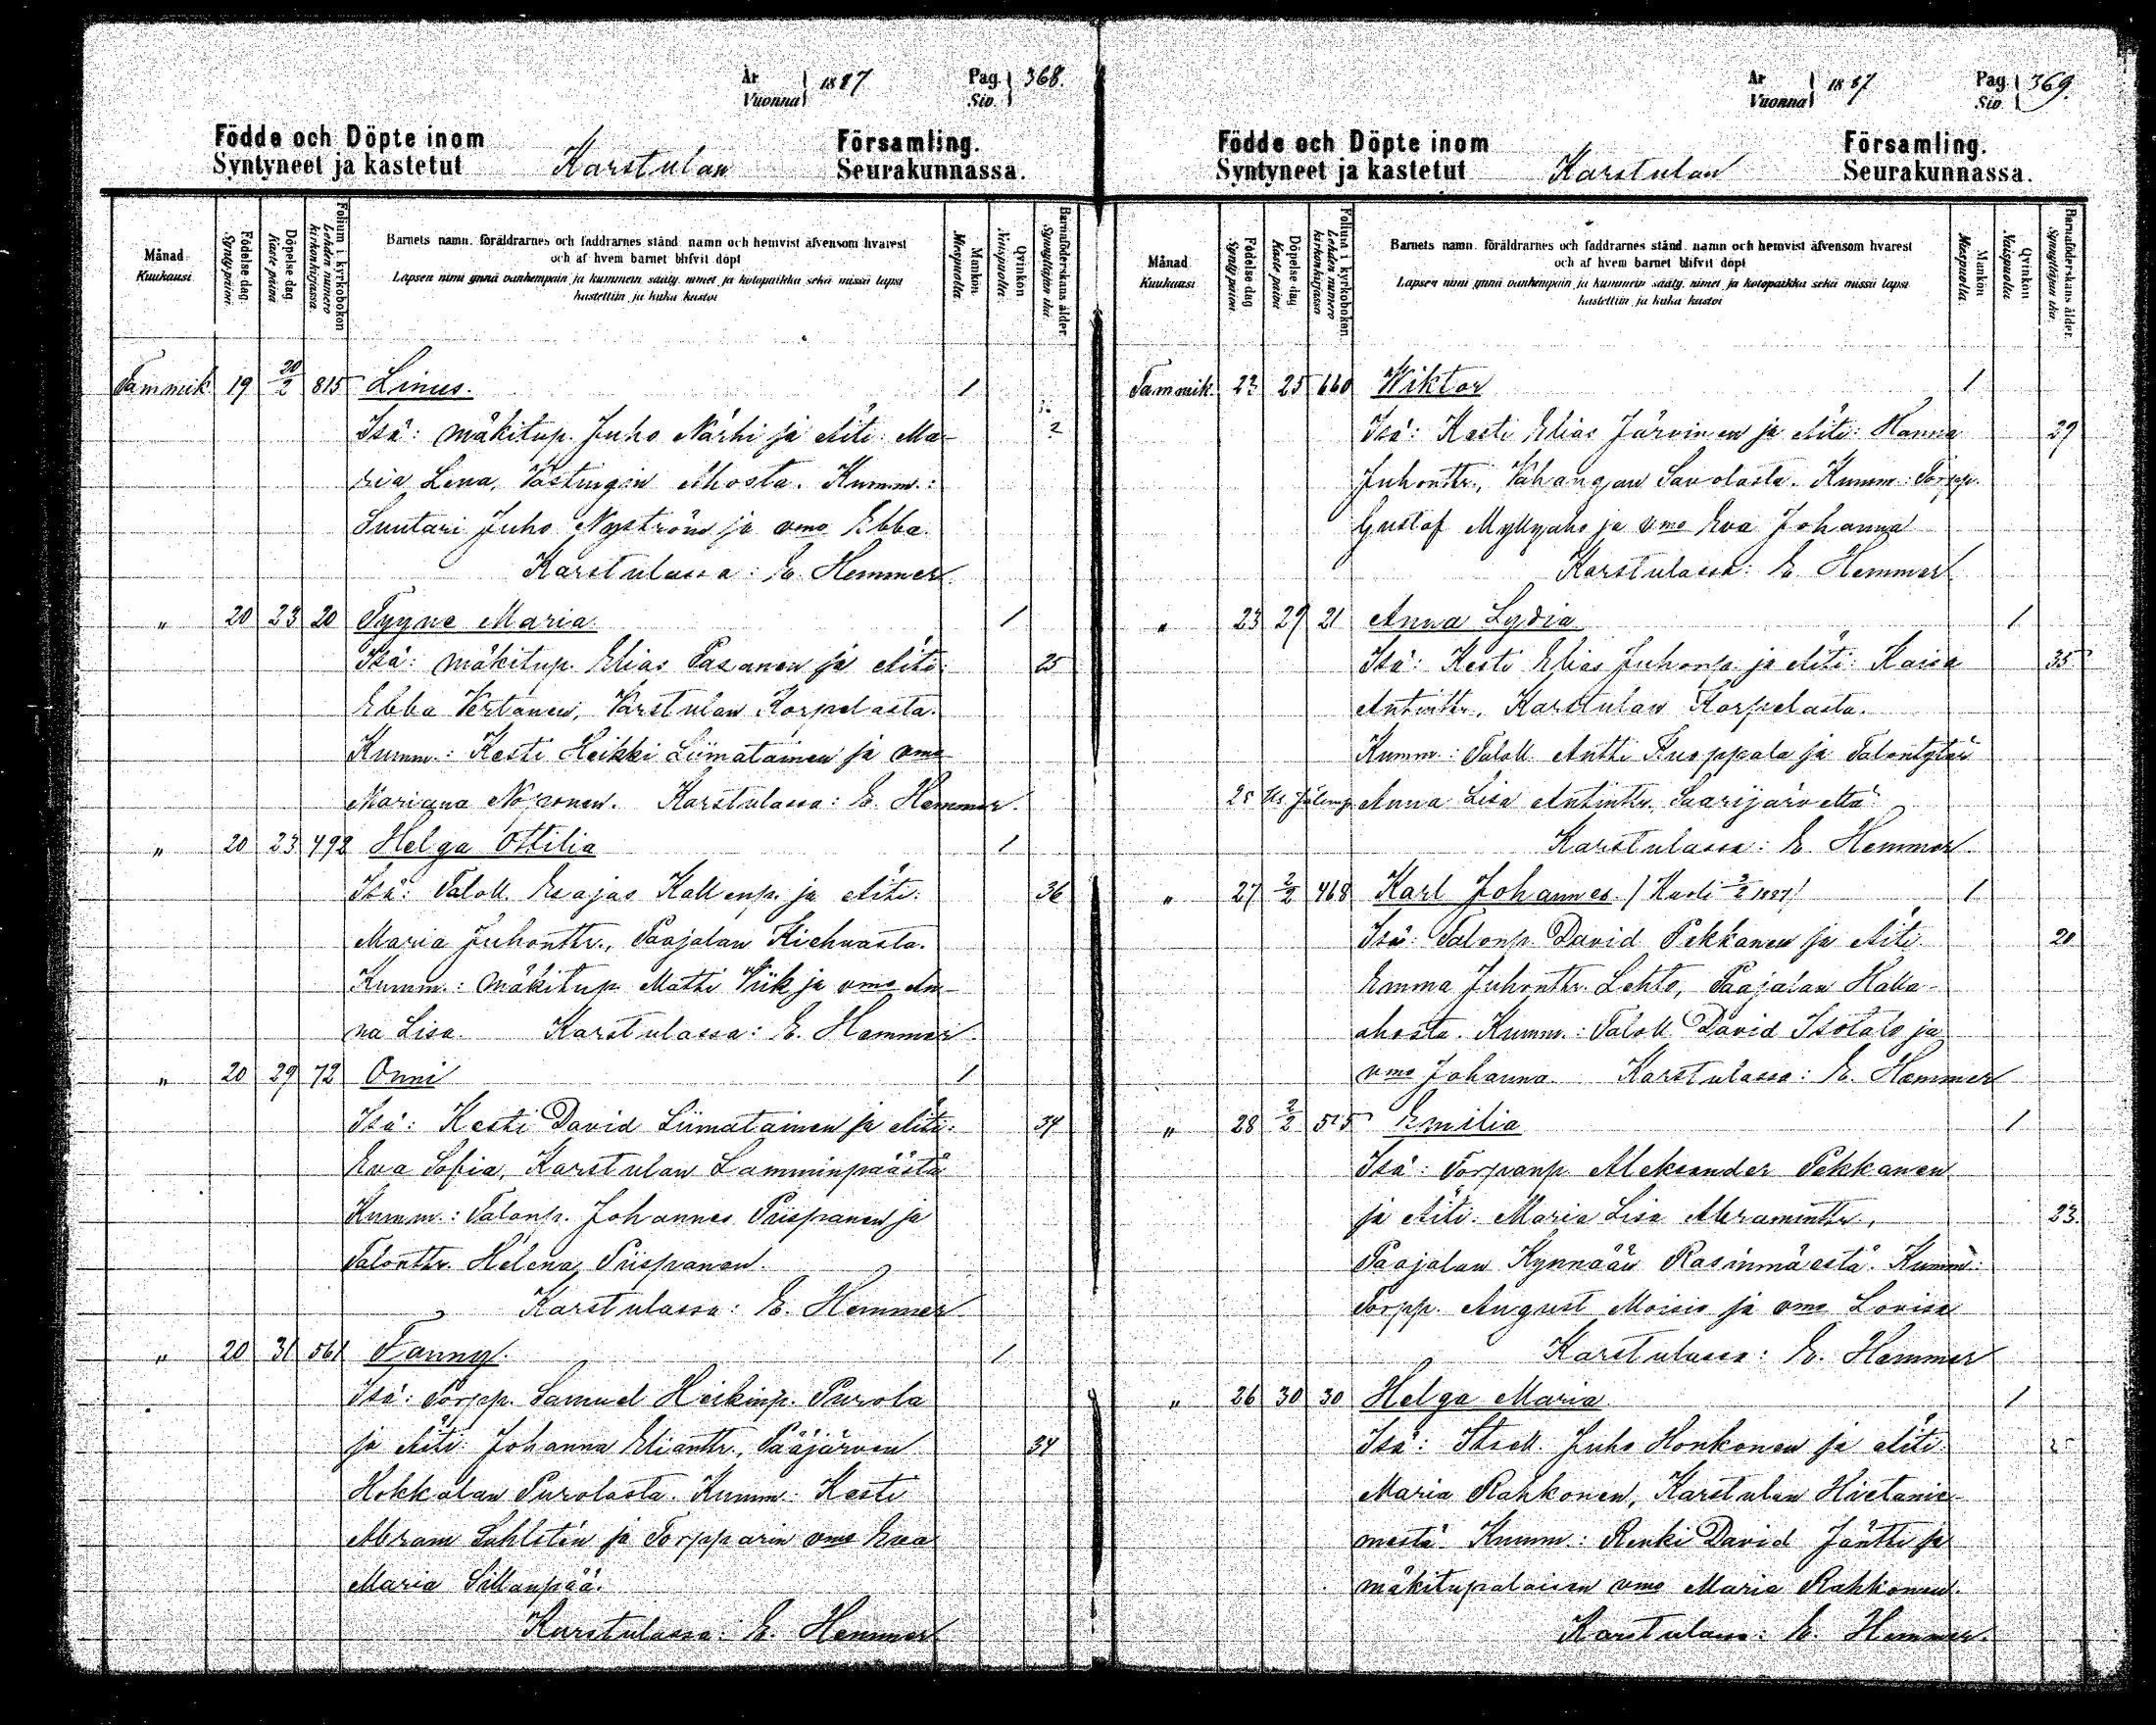 År Vuonna 1887 Pag. Siv. 368.
Födde och Döpte inom Församling.
Syntyneet ja kastetut Karstulan Seurakunnassa.
Månad Kuukausi.
Födelse dag. Syntypäivä.
Döpelse dag Kaste päivä
Folium i kyrkobokon Lehden numero kirkonkirjassa.
Barnets namn, föräldrarnes och faddrarnes stånd, namn och hemvist äfvensom hvarest
och af hvem barnet blifvit döpt
Lapsen nimi ynnä vanhempain ja kummein sääty, nimet ja kotopaikka sekä missä lapsi
kastettiin ja kuka kastoi
Mankön Miespuolia.
Qvinkön Naispuolia.
Barnaföderskans ålder. Synnyttäjän ikä.
Tammik 19 20/2 815 Linus. 1
Isä: mäkitup. Juho Närhi ja Äiti: Ma-
ria Lena, Västingin Ahosta. Kumm.:
Suutari Juho Nyström ja vmo Ebba.
Karstulassa: E. Hemmer
" 20 23 20 Tyyne Maria 1
Isä: mäkitup. Elias Pasanen ja Äiti: 25
Ebba Vertanen, Karstulan Korpelasta.
Kumm.: Kesti Heikki Liimatainen ja vmo
Mariana Noponen. Karstulassa: E. Hemmer.
" 20 23 492 Helga Ottilia 1
Isä: Taloll. Esajas Kallenp. ja Äiti: 36
Maria Juhonttr., Paajalan Kiehuasta.
Kumm.: mäkitup. Matti Wiik ja vmo An-
na Lisa. Karstulassa: E. Hemmer.
" 20 29 72 Onni 1
Isä: Kesti David Liimatainen ja Äiti: 34
Eva Sofia, Karstulan Lamminpäästä
Kumm.: Talonp. Johannes Piispanen ja
Talonttr. Helena Piispanen.
Karstulassa: E. Hemmer
" 20 31 561 Fanny. 1
Isä: Torpp. Samuel Heikinp. Purola
ja Äiti: Johanna Elianttr., Pääjärven 34
Hokkalan Purolasta. Kumm: Kesti
Abram Sahlstén ja Torpparin vmo Eva
Maria Sillanpää.
Karstulassa: E. Hemmer
År Vuonna 1887 Pag. Siv. 369.
Födde och Döpte inom Församling.
Syntyneet ja kastetut Karstulan Seurakunnassa.
Månad Kuukausi
Födelse dag Syntypäivä.
Döpelse dag Kaste päivä
Folium i kyrkobokon Lehden numero kirkonkirjassa
Barnets namn, föräldrarnes och faddrarnes stånd, namn och hemvist äfvensom hvarest
och af hvem barnet blifvit döpt
Lapsen nimi ynnä vanhempain ja kummein sääty, nimet ja kotopaikka sekä missä lapsi
kastettiin ja kuka kastoi
Mankön Miespuolia.
Qvinkön Naispuolia
Barnaföderskans ålder. Synnyttäjän ikä.
Tammik. 22 25 660 Wiktor 1
Isä: Kesti Elias Järvinen ja Äiti: Hanna 29
Juhonttr., Vahangan Savolasta. Kumm: Torpp.
Gustaf Myllyaho ja vmo Eva Johanna
Karstulassa: E. Hemmer
" 23 29 21 Anna Lydia 1
Isä: Kesti Elias Juhonp. ja Äiti: Kaisa 35
Antinttr., Karstulan Korpelasta.
Kumm.: Taloll. Antti Kuoppala ja Talontytär
Anna Lisa Antinttr. Saarijärveltä
Karstulassa: E. Hemmer.
" 27 2/2 468 Karl Johannes. / Kuoli 3/2 1887/ 1
Isä: Talonp. David Pekkanen ja Äiti 20
Emma Juhonttr. Lehto, Paajalan Halla-
ahosta. Kumm.: Taloll. David Isotalo ja
vmo Johanna Karstulassa: E. Hemmer
" 28 2/2 515 Emilia 1
Isä: Torpanp. Aleksander Pekkanen
ja Äiti: Maria Lisa Abraminttr., 23.
Paajalan Kynnään Rasinmäestä. Kumm:
Torpp. August Moisio ja vmo Lovisa
Karstulassa: E. Hemmer
" 26 30 30 Helga Maria 1
Isä: Juho Honkonen ja Äiti
Maria Rahkonen, Karstulan Hietanie-
mestä Kumm.: Renki David Jäntti ja
mäkitupalaisen vmo Maria Rahkonen.
Karstulassa: E. Hemmer.